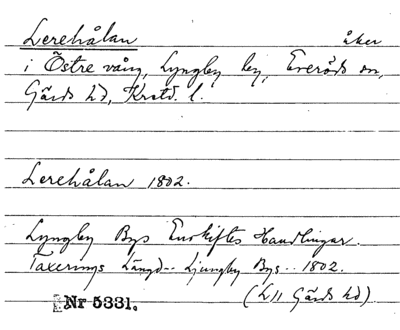 Lerehålan åker
i Östre vång, Lyngby by, Everöds sn,
Gärds hd, Krstd. l.
Lerehålan 1802.
Lyngby Bys Enskiftes Handlingar.
Taxerings Längd -- Ljungby Bys -- 1802.
(L11 Gärds hd)
Nr 5331.